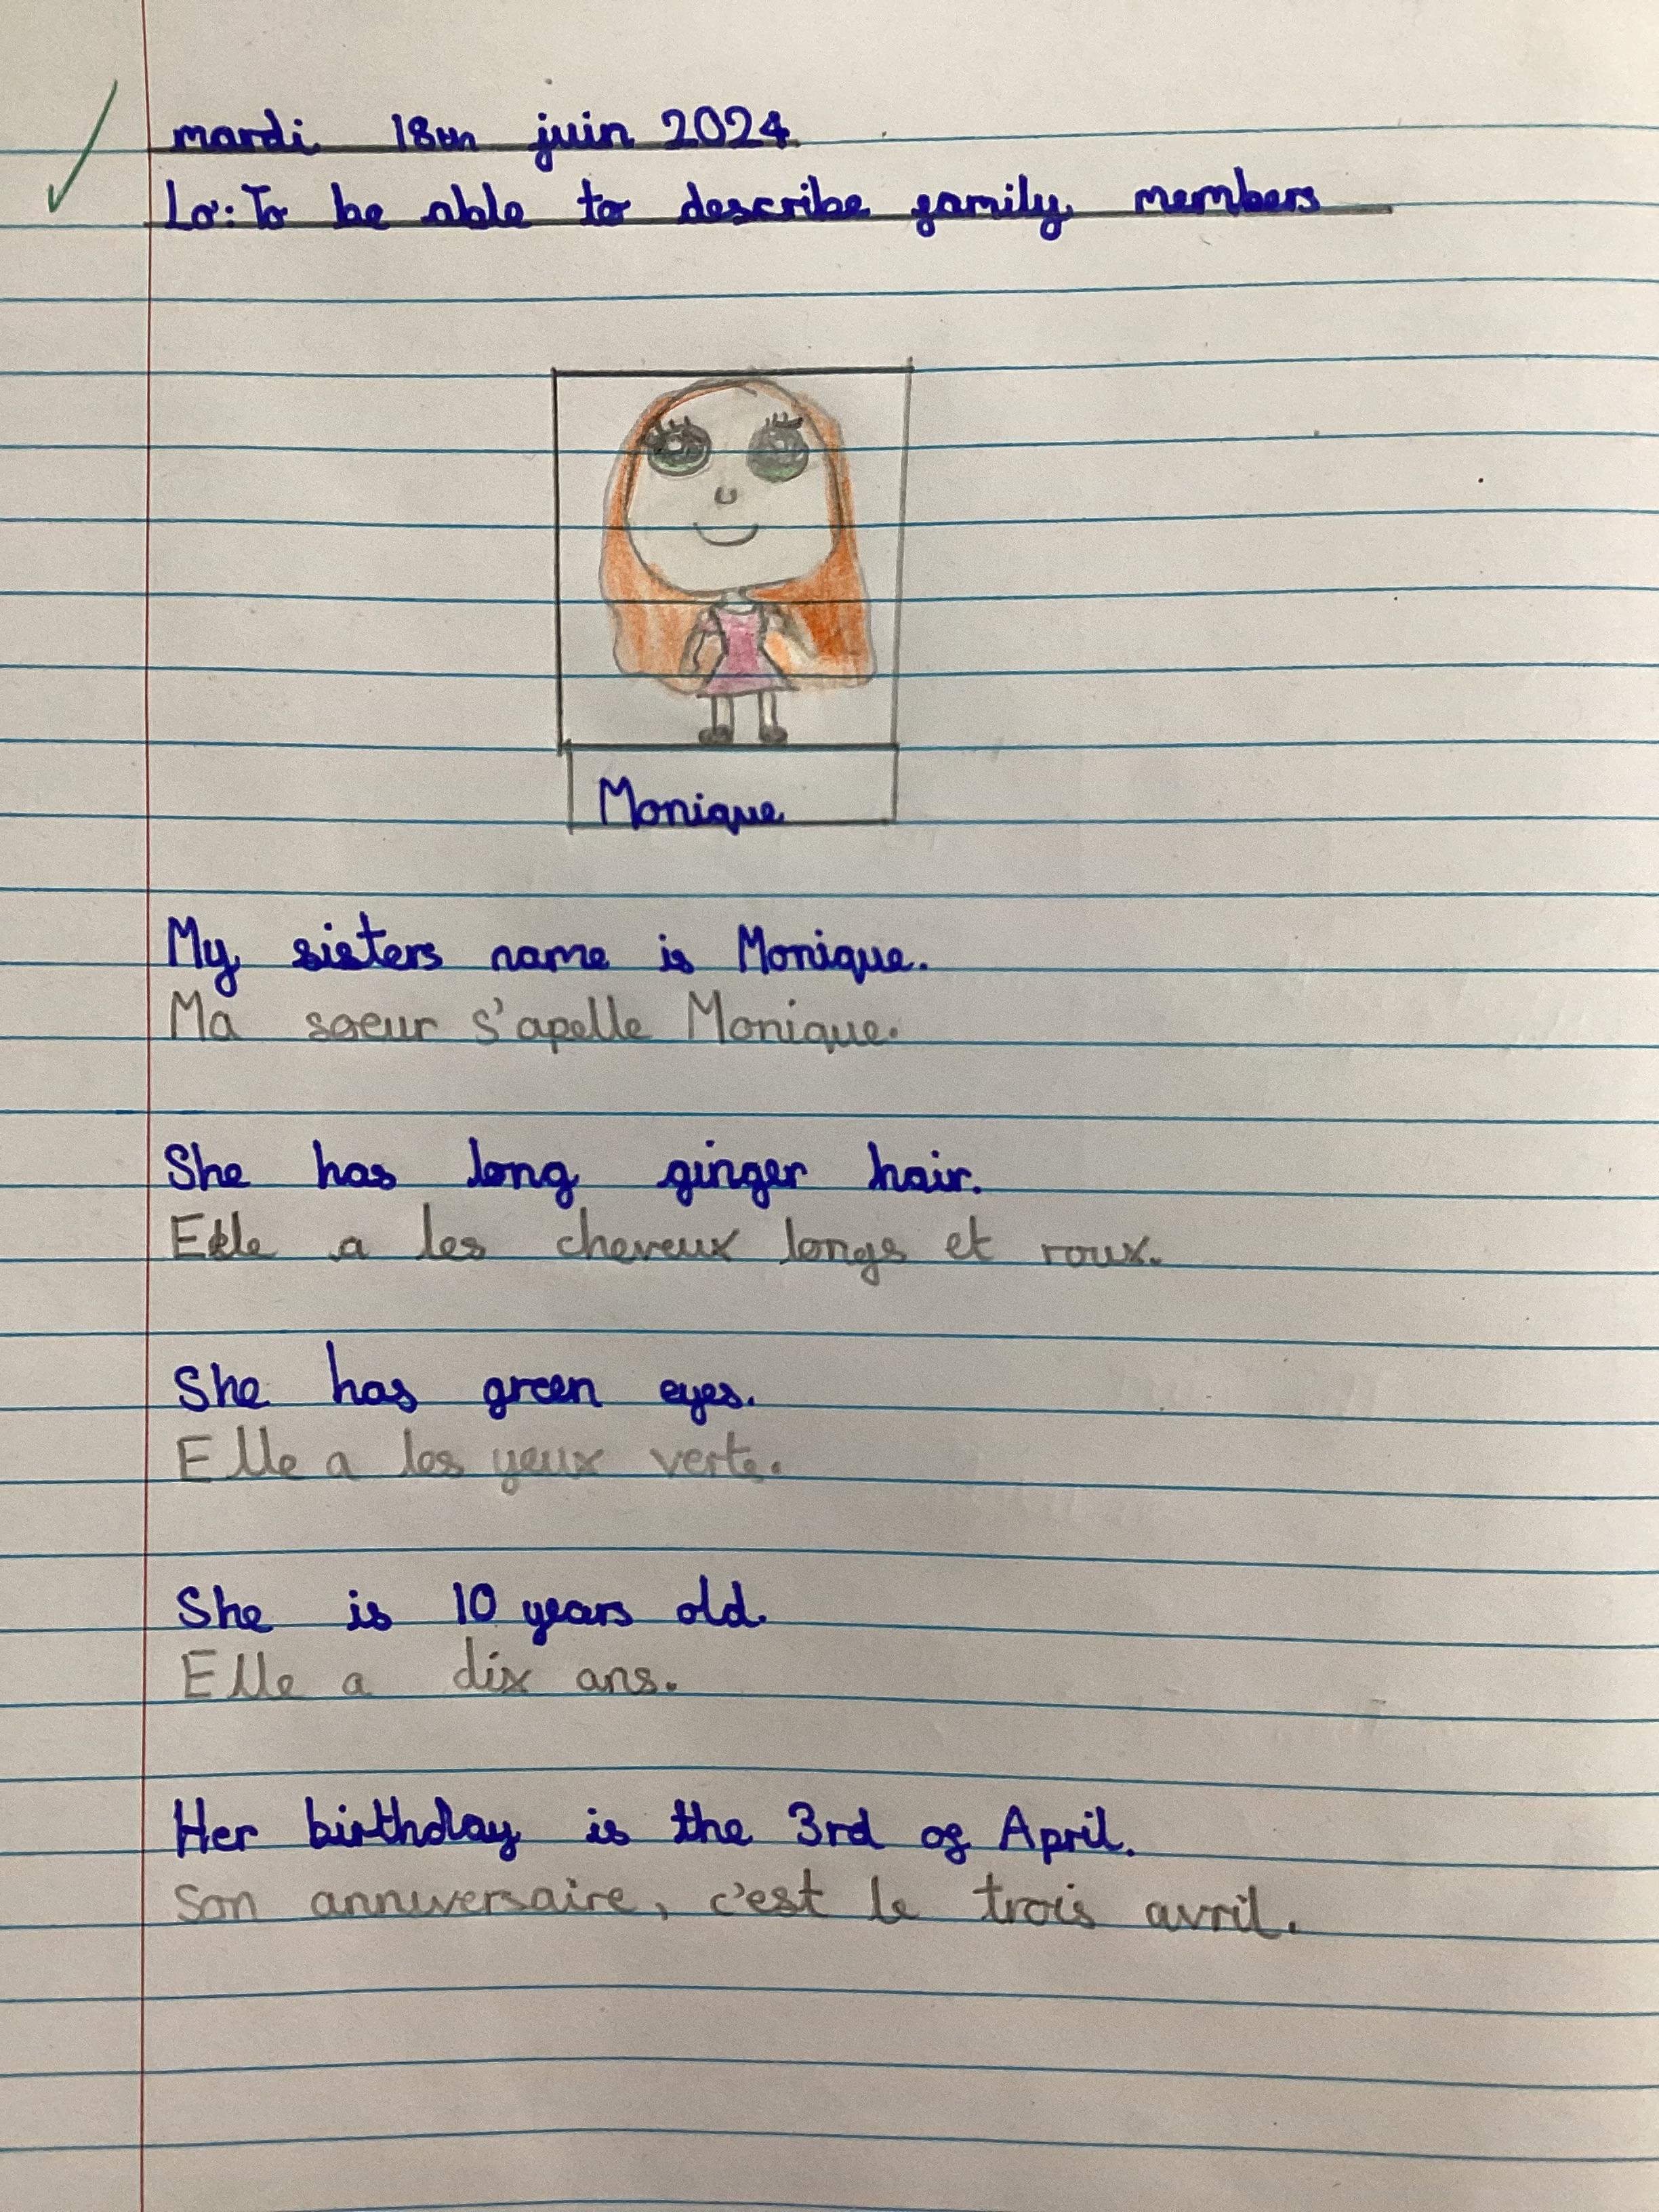 mardi 18th juin 2024
Lo: To be able to describe family members
Monique
My sisters name is Monique.
Ma soeur s'apelle Monique.
She has long ginger hair.
Elle a les cheveux longs et roux.
She has green eyes.
Elle a les yeux verts.
She is 10 years old.
Elle a dix ans.
Her birthday is the 3rd of April.
Son anniversaire, c'est le trois avril.